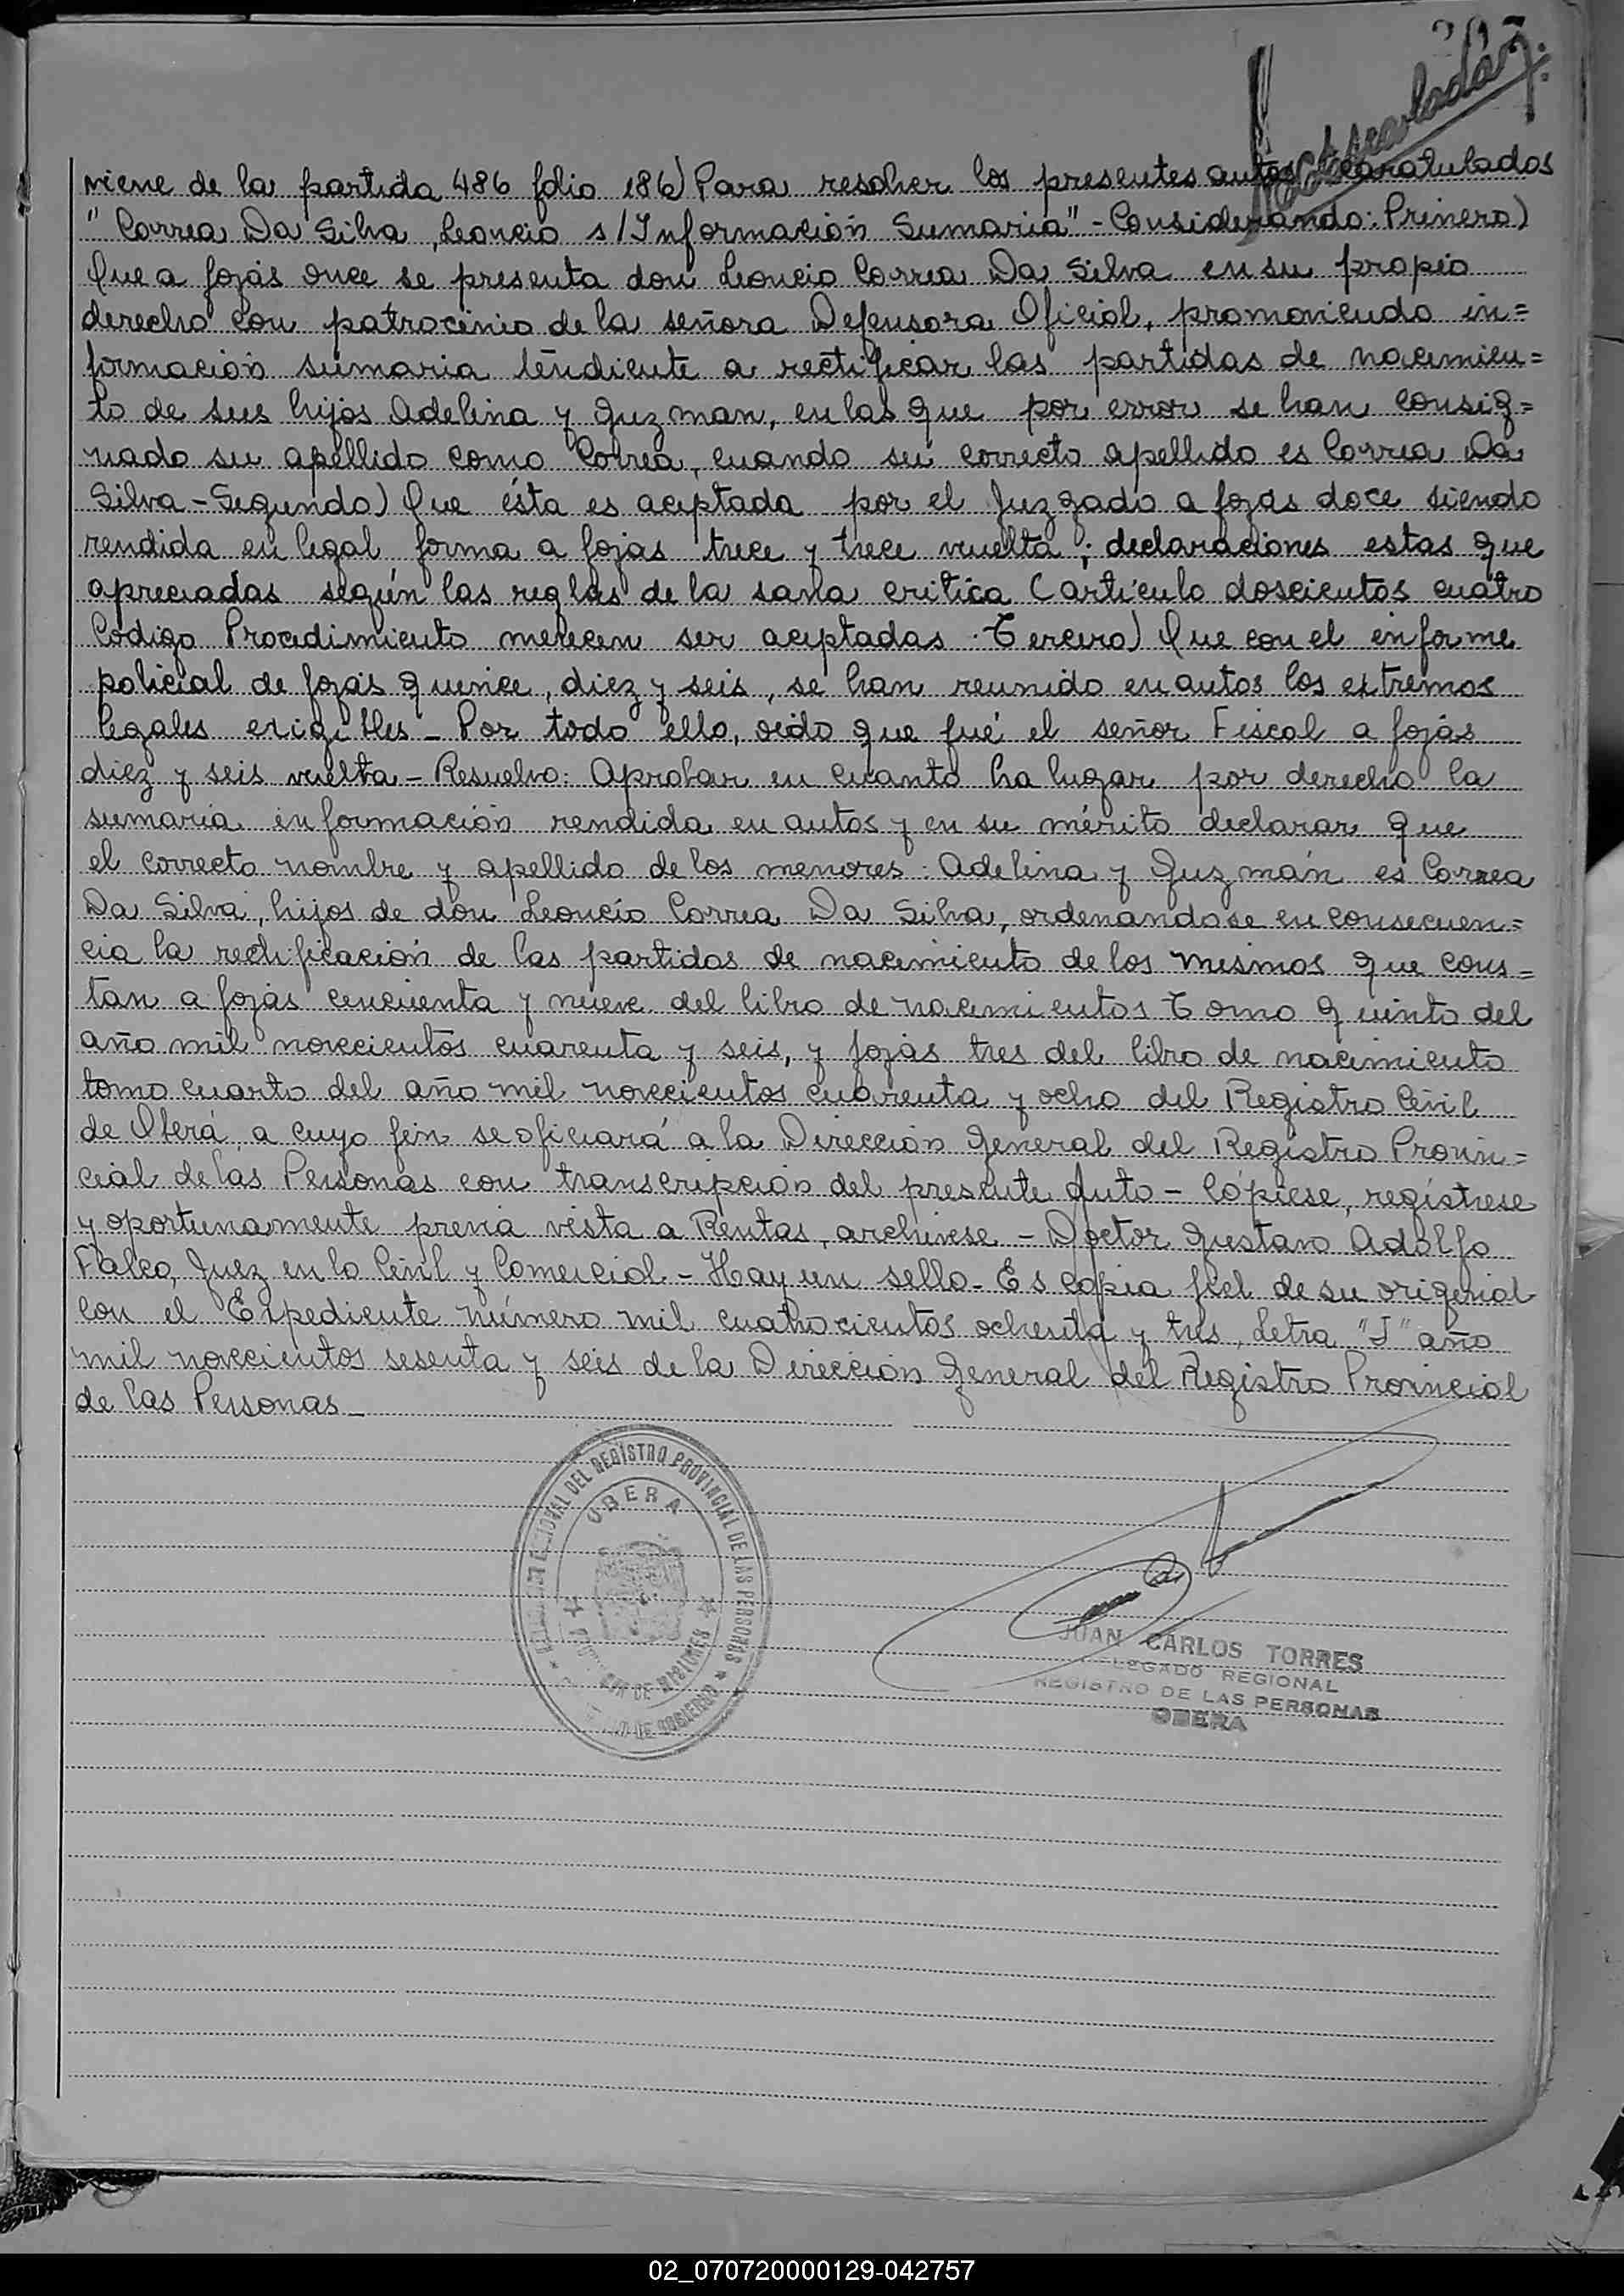 viene de la partida 486 folio 186) Para resolver los presentes autos caratulados
"Correa Da Silva, Leoncio s/Información Sumaria" - Considerando: Primero)
Que a fojas once se presenta don Leoncio Correa Da Silva en su propio
derecho con patrocinio de la señora Defensora Oficial, promoviendo in=
formación sumaria tendiente a rectificar las partidas de nacimien=
to de sus hijos Adelina y Guzman, en las que por error se han consig=
nado su apellido como Correa, cuando su correcto apellido es Correa Da
Silva - Segundo) Que ésta es aceptada por el Juzgado a fojas doce siendo
rendida en legal forma a fojas trece y trece vuelta; declaraciones estas que
apreciadas según las reglas de la sana critica (artículo doscientos cuatro
Codigo Procedimiento merecen ser aceptadas. Tercero) Que con el informe
policial de fojas quince, diez y seis, se han reunido en autos los extremos
legales exigibles - Por todo ello, oido que fué el señor Fiscal a fojas
diez y seis vuelta - Resuelvo: Aprobar en cuanto ha lugar por derecho la
sumaria información rendida en autos y en su mérito declarar que
el correcto nombre y apellido de los menores: Adelina y Guzmán es Correa
Da Silva, hijos de don Leoncio Correa Da Silva, ordenandose en consecuen=
cia la rectificación de las partidas de nacimiento de los mismos que cons=
tan a fojas cincuenta y nueve del libro de nacimientos Tomo quinto del
año mil novecientos cuarenta y seis, y fojas tres del libro de nacimiento
tomo cuarto del año mil novecientos cuarenta y ocho del Registro Civil
de Oberá a cuyo fin se oficiará a la Dirección General del Registro Provin=
cial de las Personas con transcripción del presente Auto - Cópiese, regístrese
y oportunamente previa vista a Rentas, archivese - Doctor Gustavo Adolfo
Falco, Juez en lo Civil y Comercial - Hay un sello - Es copia fiel de su original
con el Expediente número mil cuatrocientos ochenta y tres, Letra "I" año
mil novecientos sesenta y seis de la Dirección General del Registro Provincial
de las Personas -
DEL REGISTRO PROVINCIAL DE LAS PERSONAS
OBERA
DE MISIONES
DE GOBIERNO
JUAN CARLOS TORRES
LEGADO REGIONAL
REGISTRO DE LAS PERSONAS
OBERA
02_070720000129-042757